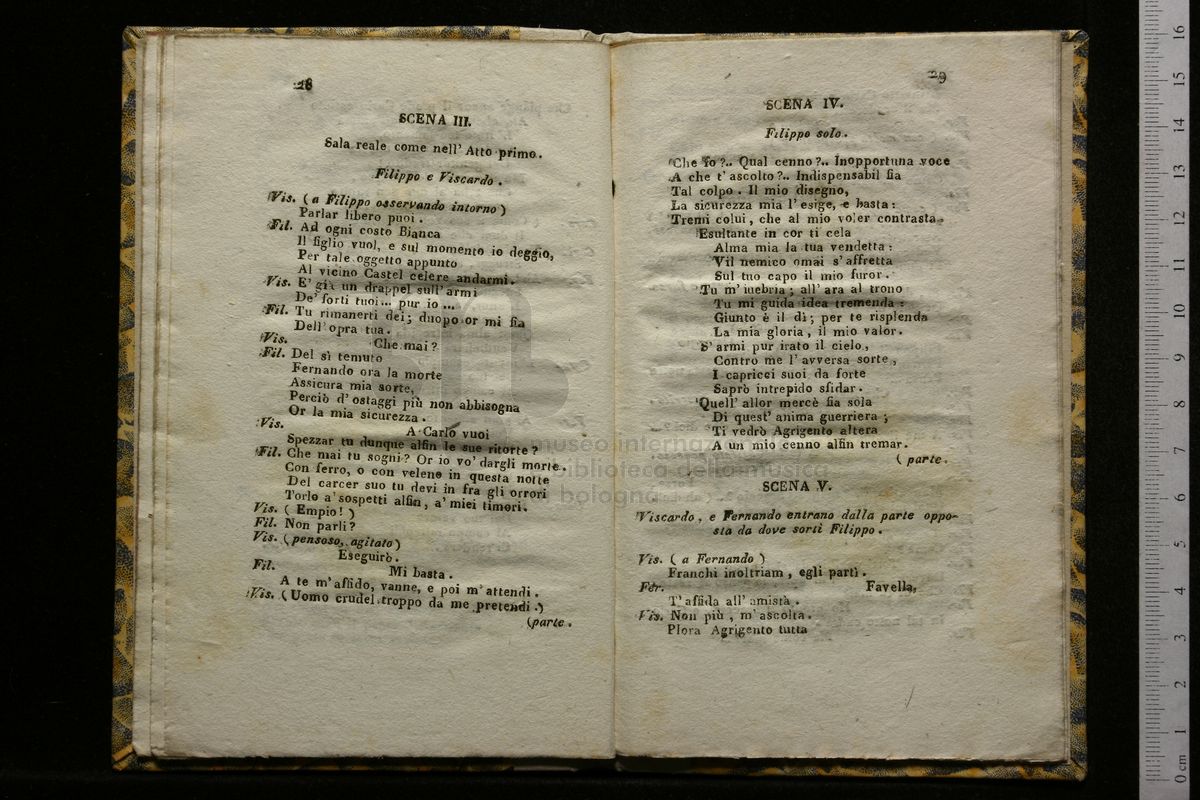 28
SCENA III.
Sala reale come nell' Atto primo.
Filippo e Viscardo.
Vis. (a Filippo osservando intorno)
Parlar libero puoi.
Fil. Ad ogni costo Bianca
Il figlio vuol, e sul momento io deggio,
Per tale oggetto appunto
Al vicino Castel celere andarmi.
Vis. E' già un drappel sull' armi
De' forti tuoi... pur io ...
Fil. Tu rimanerti dei; duopo or mi fia
Dell' opra tua.
Vis. Che mai?
Fil. Del sì temuto
Fernando ora la morte
Assicura mia sorte,
Perciò d' ostaggi più non abbisogna
Or la mia sicurezza.
Vis. A Carlo vuoi
Spezzar tu dunque alfin le sue ritorte?
Fil. Che mai tu sogni? Or io vo' dargli morte.
Con ferro, o con veleno in questa notte
Del carcer suo tu devi in fra gli orrori
Torlo a' sospetti alfin, a' miei timori.
Vis. (Empio!)
Fil. Non parli?
Vis. (pensoso, agitato)
Eseguirò.
Fil. Mi basta.
A te m' affido, vanne, e poi m' attendi.
Vis. (Uomo crudel troppo da me pretendi.)
(parte.
29
SCENA IV.
Filippo solo.
Che fo?.. Qual cenno?.. Inopportuna voce
A che t' ascolto?.. Indispensabil fia
Tal colpo. Il mio disegno,
La sicurezza mia l' esige, e basta:
Tremi colui, che al mio voler contrasta.
Esultante in cor ti cela
Alma mia la tua vendetta:
Vil nemico omai s' affretta
Sul tuo capo il mio furor.
Tu m' inebria; all' ara al trono
Tu mi guida idea tremenda:
Giunto è il dì; per te risplenda
La mia gloria, il mio valor.
S' armi pur irato il cielo,
Contro me l' avversa sorte,
I capricci suoi da forte
Saprò intrepido sfidar.
Quell' allor mercè fia sola
Di quest' anima guerriera;
Ti vedrò Agrigento altera
A un mio cenno alfin tremar.
(parte.
SCENA V.
Viscardo, e Fernando entrano dalla parte oppo-
sta da dove sortì Filippo.
Vis. (a Fernando)
Franchi inoltriam, egli partì.
Fer. Favella,
T' affida all' amistà.
Vis. Non più, m' ascolta.
Plora Agrigento tutta
museo internaz
biblioteca della musica
bologna
0 cm 1 2 3 4 5 6 7 8 9 10 11 12 13 14 15 16